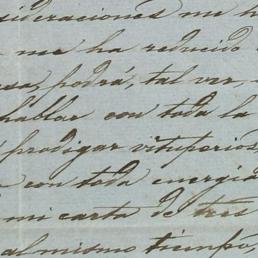 sideraciones me h
me ha reducido
sa, podrá, tal vez,
hablar con toda la
prodigar vituperios
con toda energia
mi carta de tres
al mismo tiempo,